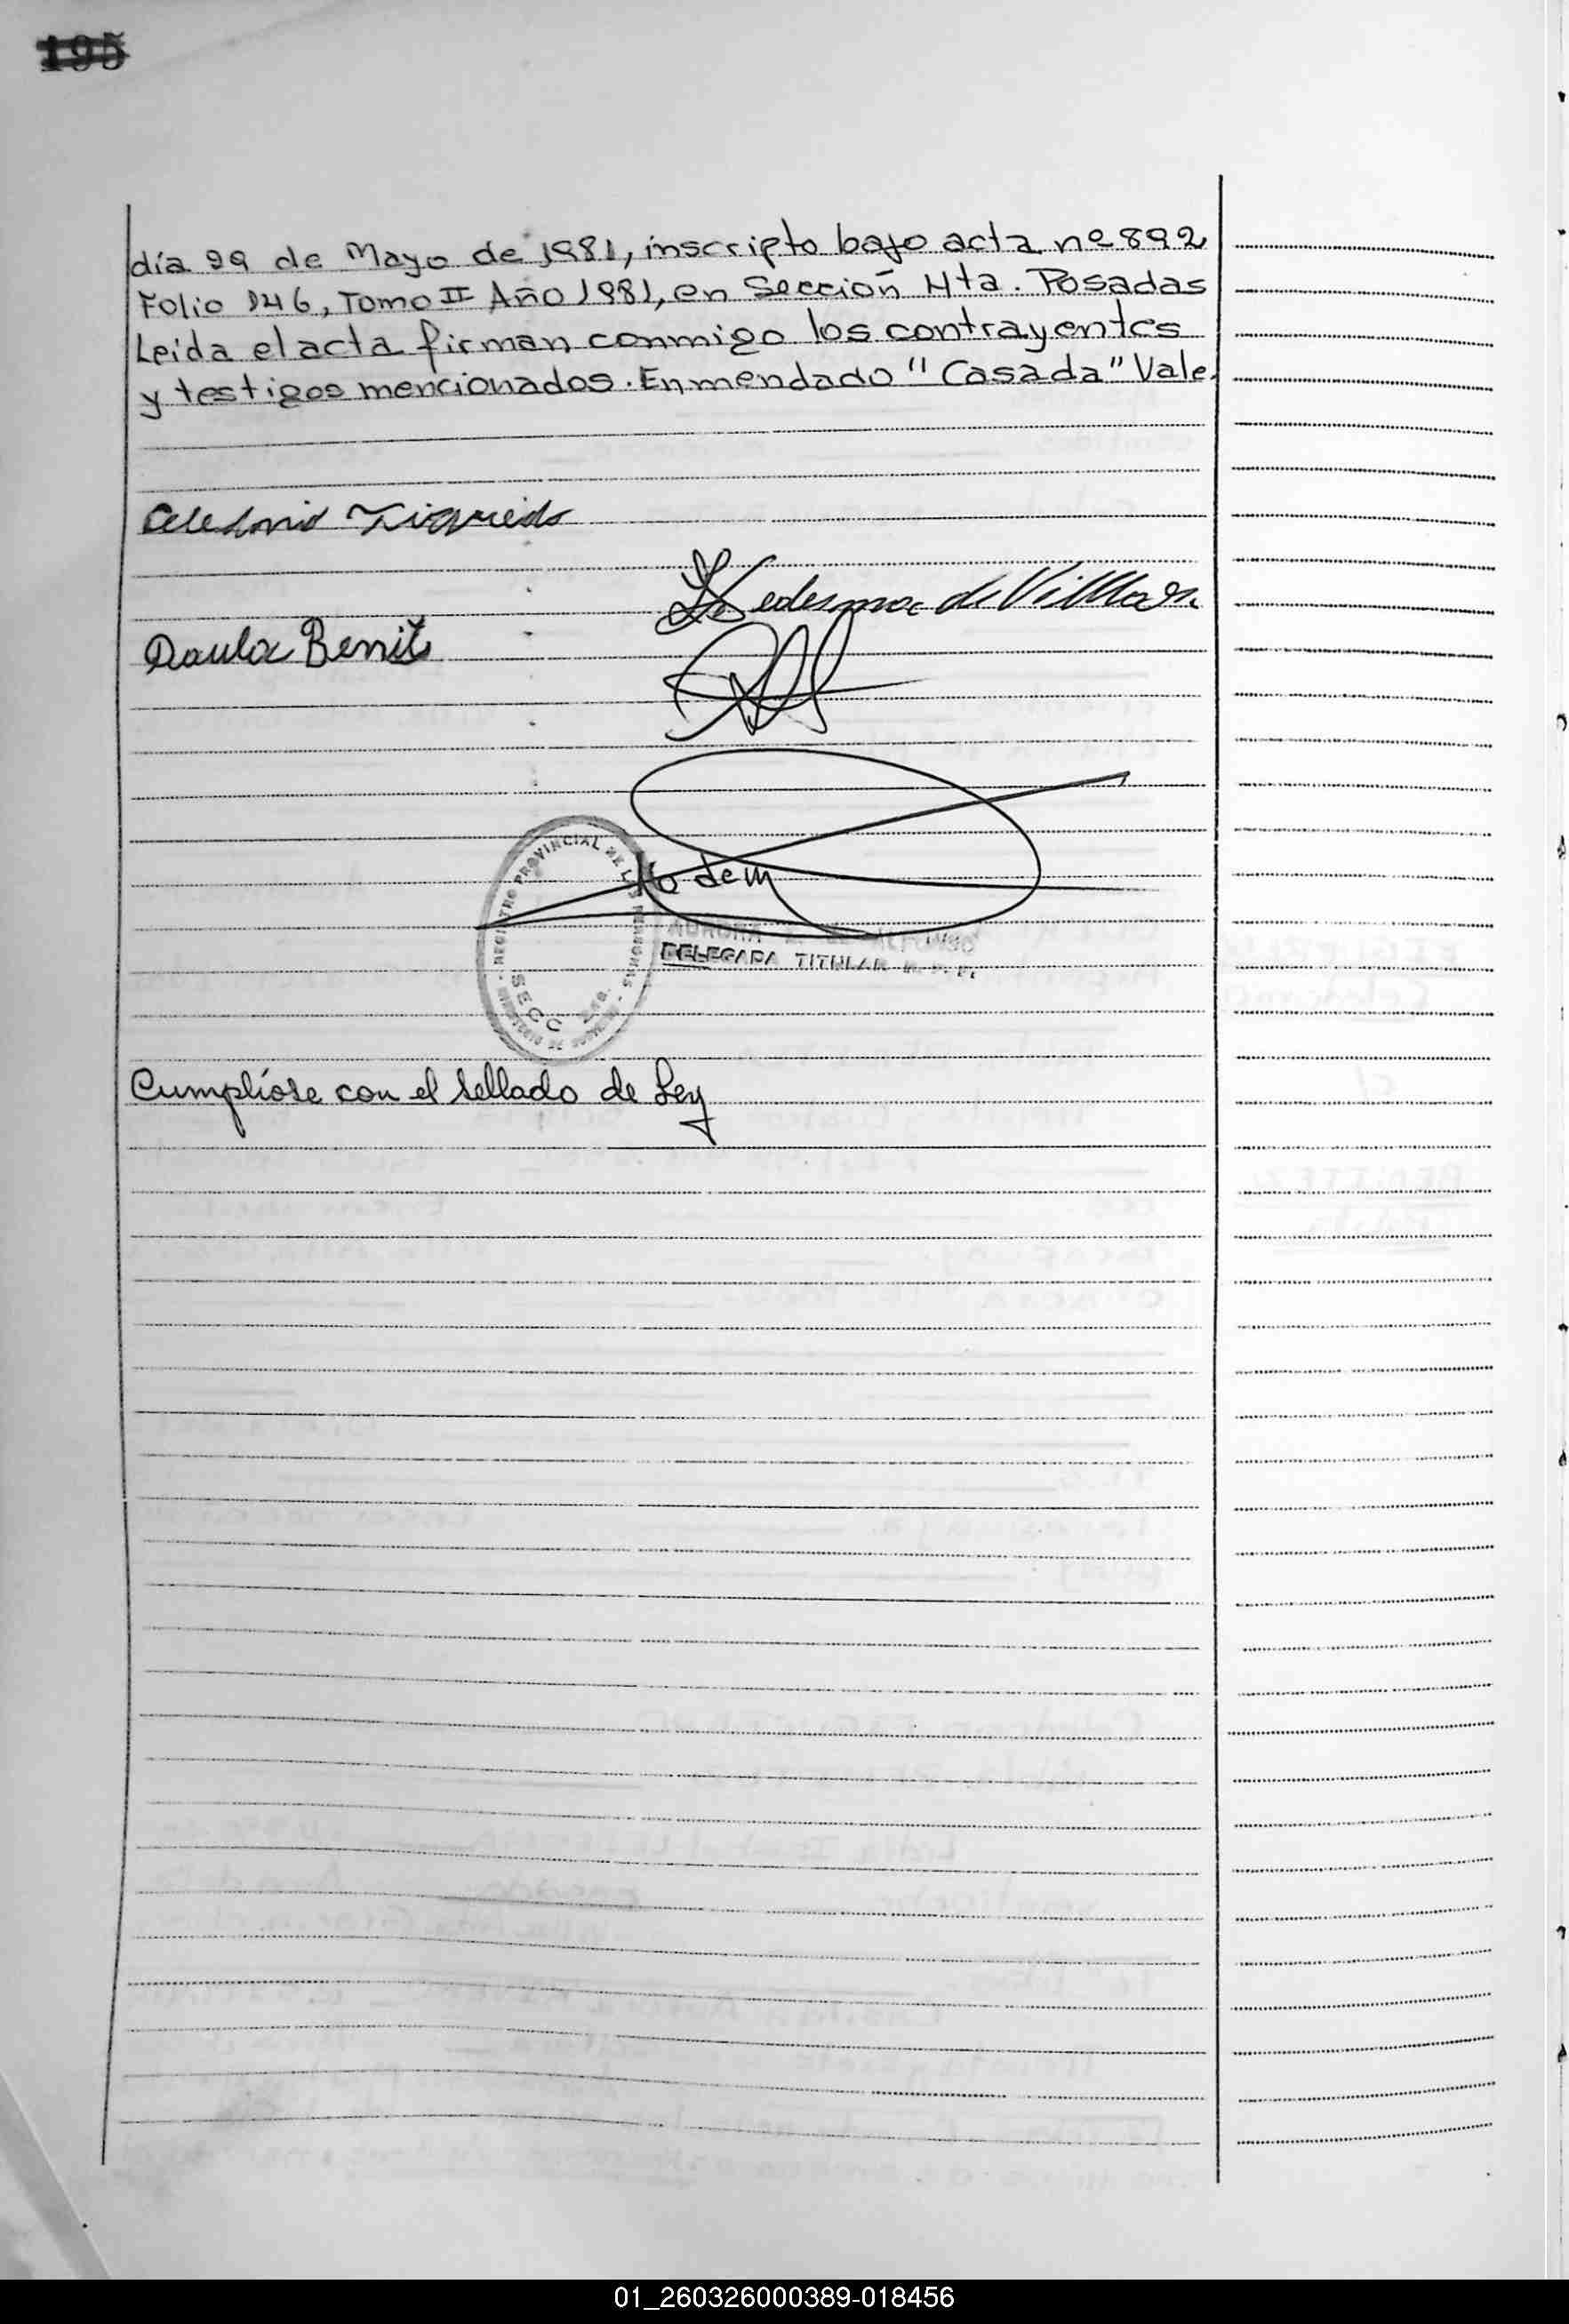 195
día 29 de Mayo de 1981, inscripto bajo acta nº 892
Folio 146, Tomo II Año 1981, en Sección 4ta. Posadas
Leída el acta firman conmigo los contrayentes
y testigos mencionados. Enmendado "Casada" Vale.
Celedonio Figueredo
Ledesma de Villar
Paula Benit
REGISTRO PROVINCIAL DE LAS PERSONAS
SECC
AURORA DE ALFONSO
DELEGADA TITULAR R. P. P.
Cumplióse con el sellado de Ley
01_260326000389-018456